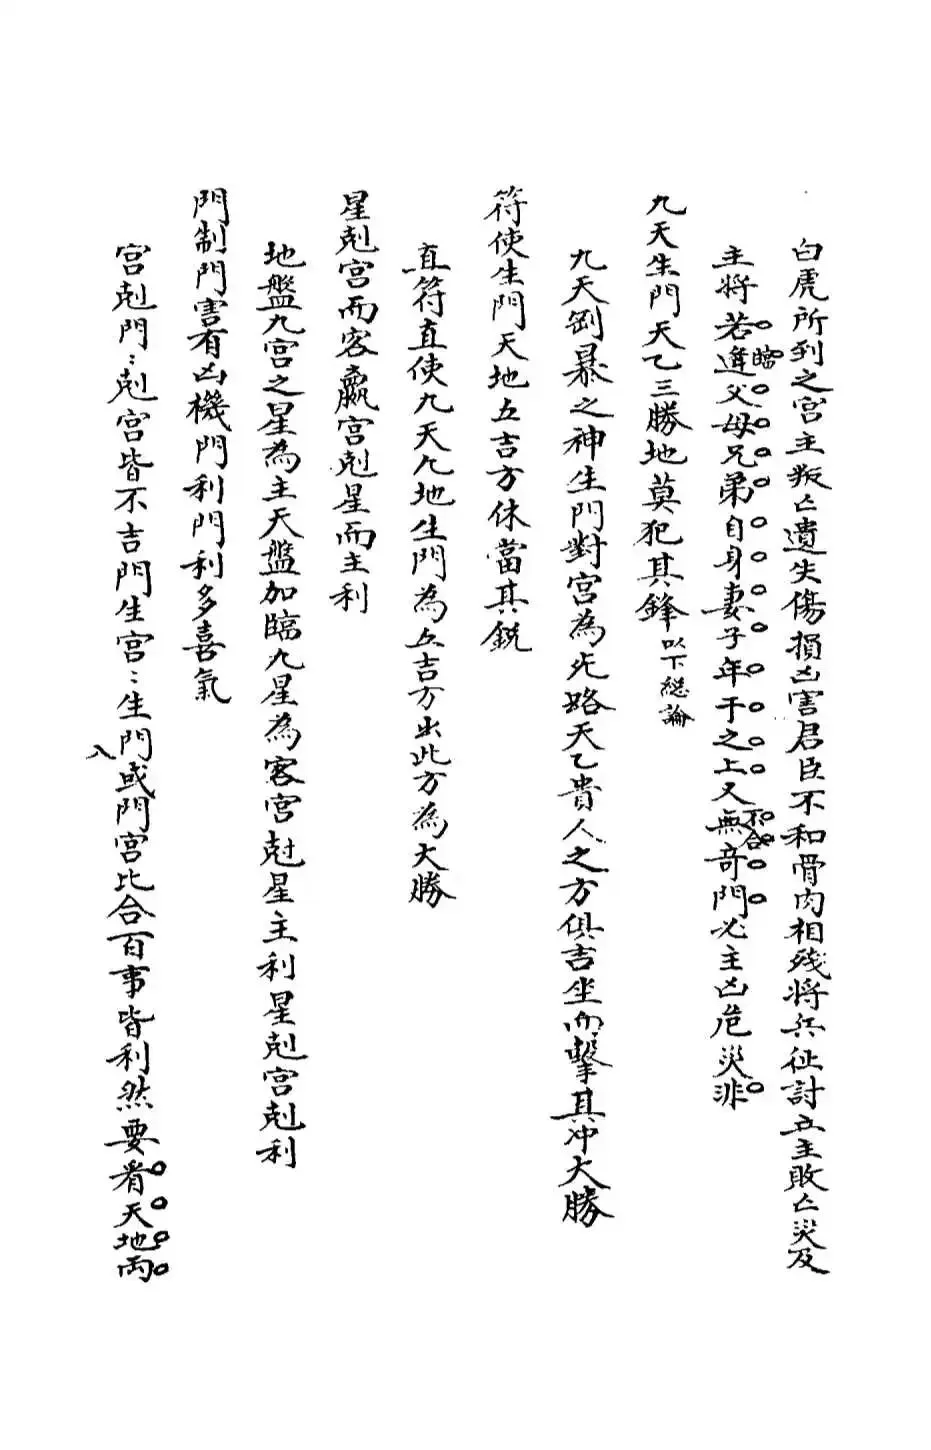 白虎所到之宮主叛亡遺失傷損凶害君臣不和骨肉相殘將兵征討立主敗亡災及
主將若逢臨父母兄弟自身妻子年干之上又無不合奇門必主凶危災非
九天生門天乙三勝地莫犯其鋒以下緫論
九天剛暴之神生門對宮為死路天乙貴人之方俱吉坐而擊其冲大勝
符使生門天地五吉方休當其銳
直符直使九天九地生門為五吉方出此方為大勝
星剋宮而客贏宮剋星而主利
地盤九宮之星為主天盤加臨九星為客宮尅星主利星剋宮剋利
門制門害有凶機門利門利多喜氣
宮剋門〻剋宮皆不吉門生宮〻生門或門宮比合百事皆利然要看天地兩
入